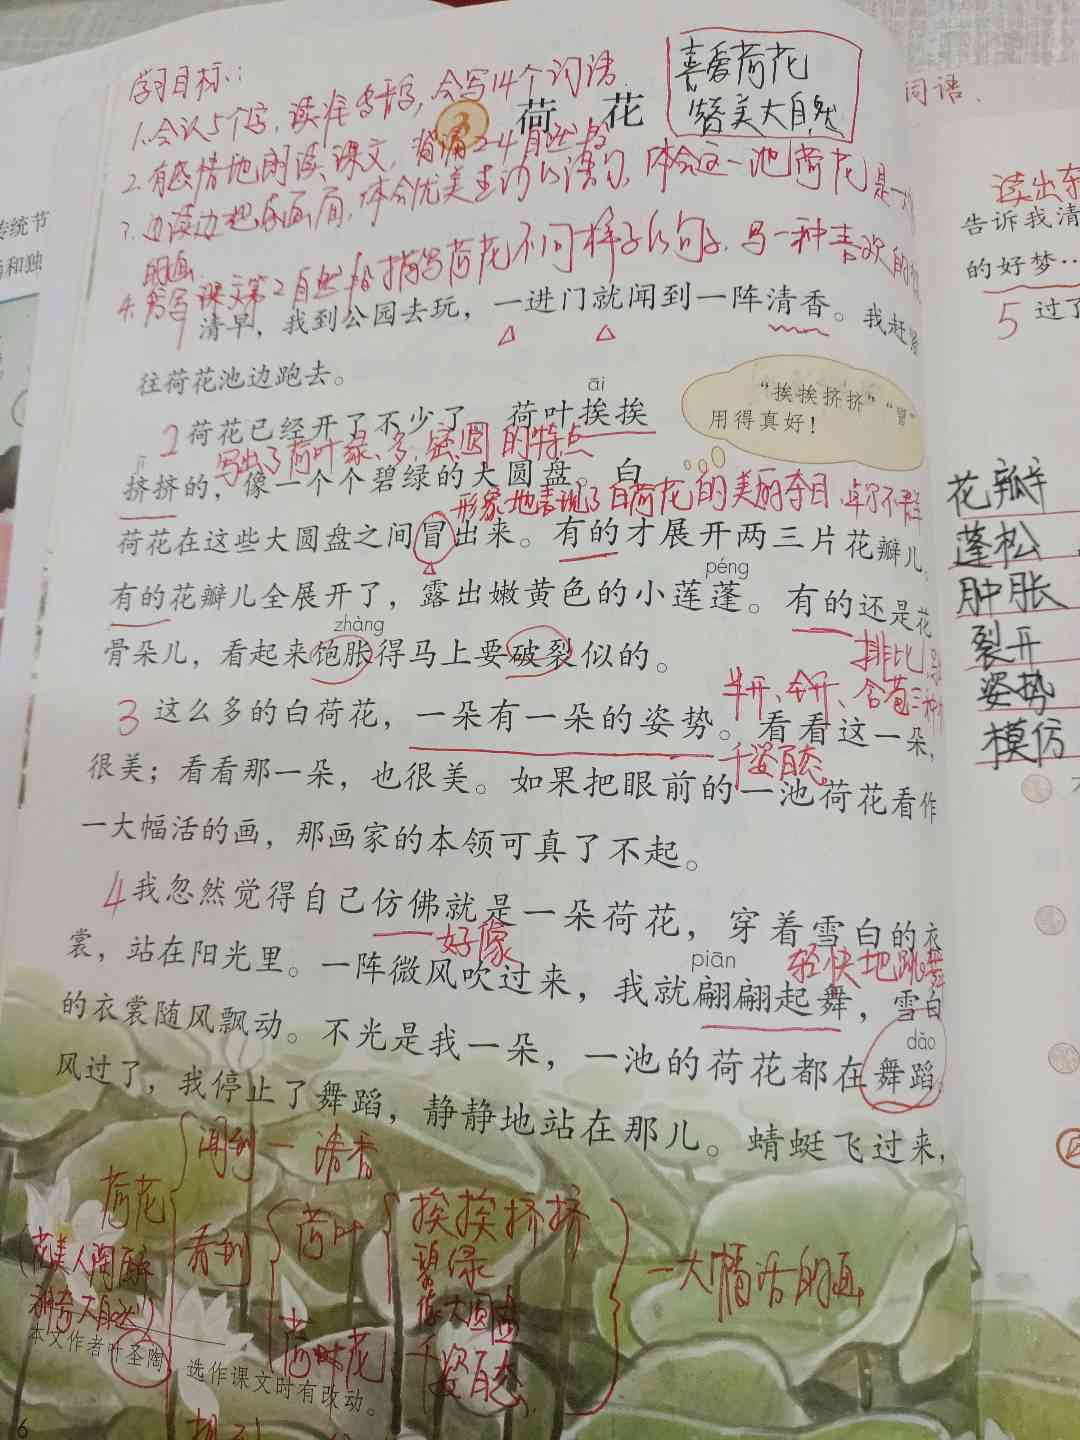 学习目标：
1.会认5个字，读准多音字，会写14个词语
3 荷 花
喜爱荷花
赞美大自然
2.有感情地朗读课文，背诵2-4自然段
3.边读边想象画面，体会优美生动的语句，体会这一池荷花是一
的画
4.书写课文第2自然段描写荷花不同样子的句子，写一种喜欢的
清早，我到公园去玩，一进门就闻到一阵清香。我赶紧
往荷花池边跑去。
“挨挨挤挤”“冒”
用得真好！
āi
2荷花已经开了不少了 荷叶挨挨
写出了荷叶绿、多、密、圆的特点
jǐ
挤挤的，像一个个碧绿的大圆盘。白
形象地表现了白荷花的美丽夺目，卓尔不群
荷花在这些大圆盘之间冒出来。有的才展开两三片花瓣儿。
péng
有的花瓣儿全展开了，露出嫩黄色的小莲蓬。有的还是花
zhàng
骨朵儿，看起来饱胀得马上要破裂似的。
排比
半开、全开、含苞三种
3 这么多的白荷花，一朵有一朵的姿势。看看这一朵，
千姿百态
很美；看看那一朵，也很美。如果把眼前的一池荷花看作
一大幅活的画，那画家的本领可真了不起。
4我忽然觉得自己仿佛就是一朵荷花，穿着雪白的衣
好像
轻快地跳舞
piān
裳，站在阳光里。一阵微风吹过来，我就翩翩起舞，雪白
的衣裳随风飘动。不光是我一朵，一池的荷花都在舞蹈。
dǎo
风过了，我停止了舞蹈，静静地站在那儿。蜻蜓飞过来，
荷花
闻到一清香
看到
荷叶
挨挨挤挤
碧绿
像大圆盘
荷花
千姿百态
一大幅活的画
本文作者叶圣陶，选作课文时有改动。
6
传统节
和独
词语、
读出
告诉我清
的好梦…
5 过了
花瓣
蓬松
肿胀
裂开
姿势
模仿